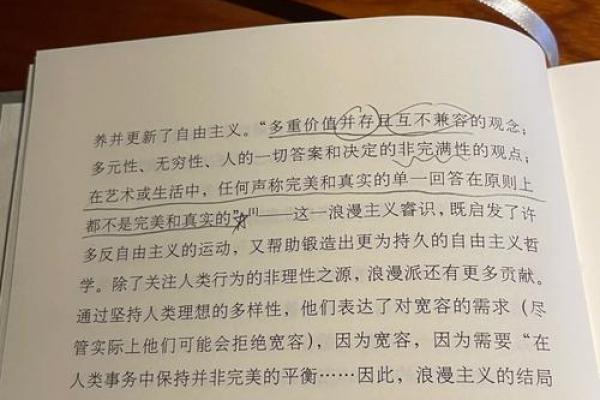 养并更新了自由主义。“多重价值并存且互不兼容的观念；
多元性、无穷性、人的一切答案和决定的非完满性的观点；
在艺术或生活中，任何声称完美和真实的单一回答在原则上
都不是完美和真实的”[1]——这一浪漫主义睿识，既启发了许
多反自由主义的运动，又帮助锻造出更为持久的自由主义哲
学。除了关注人类行为的非理性之源，浪漫派还有更多贡献。
通过坚持人类理想的多样性，他们表达了对宽容的需求（尽
管实际上他们可能会拒绝宽容），因为宽容，因为需要“在
人类事务中保持并非完美的平衡……因此，浪漫主义的结局